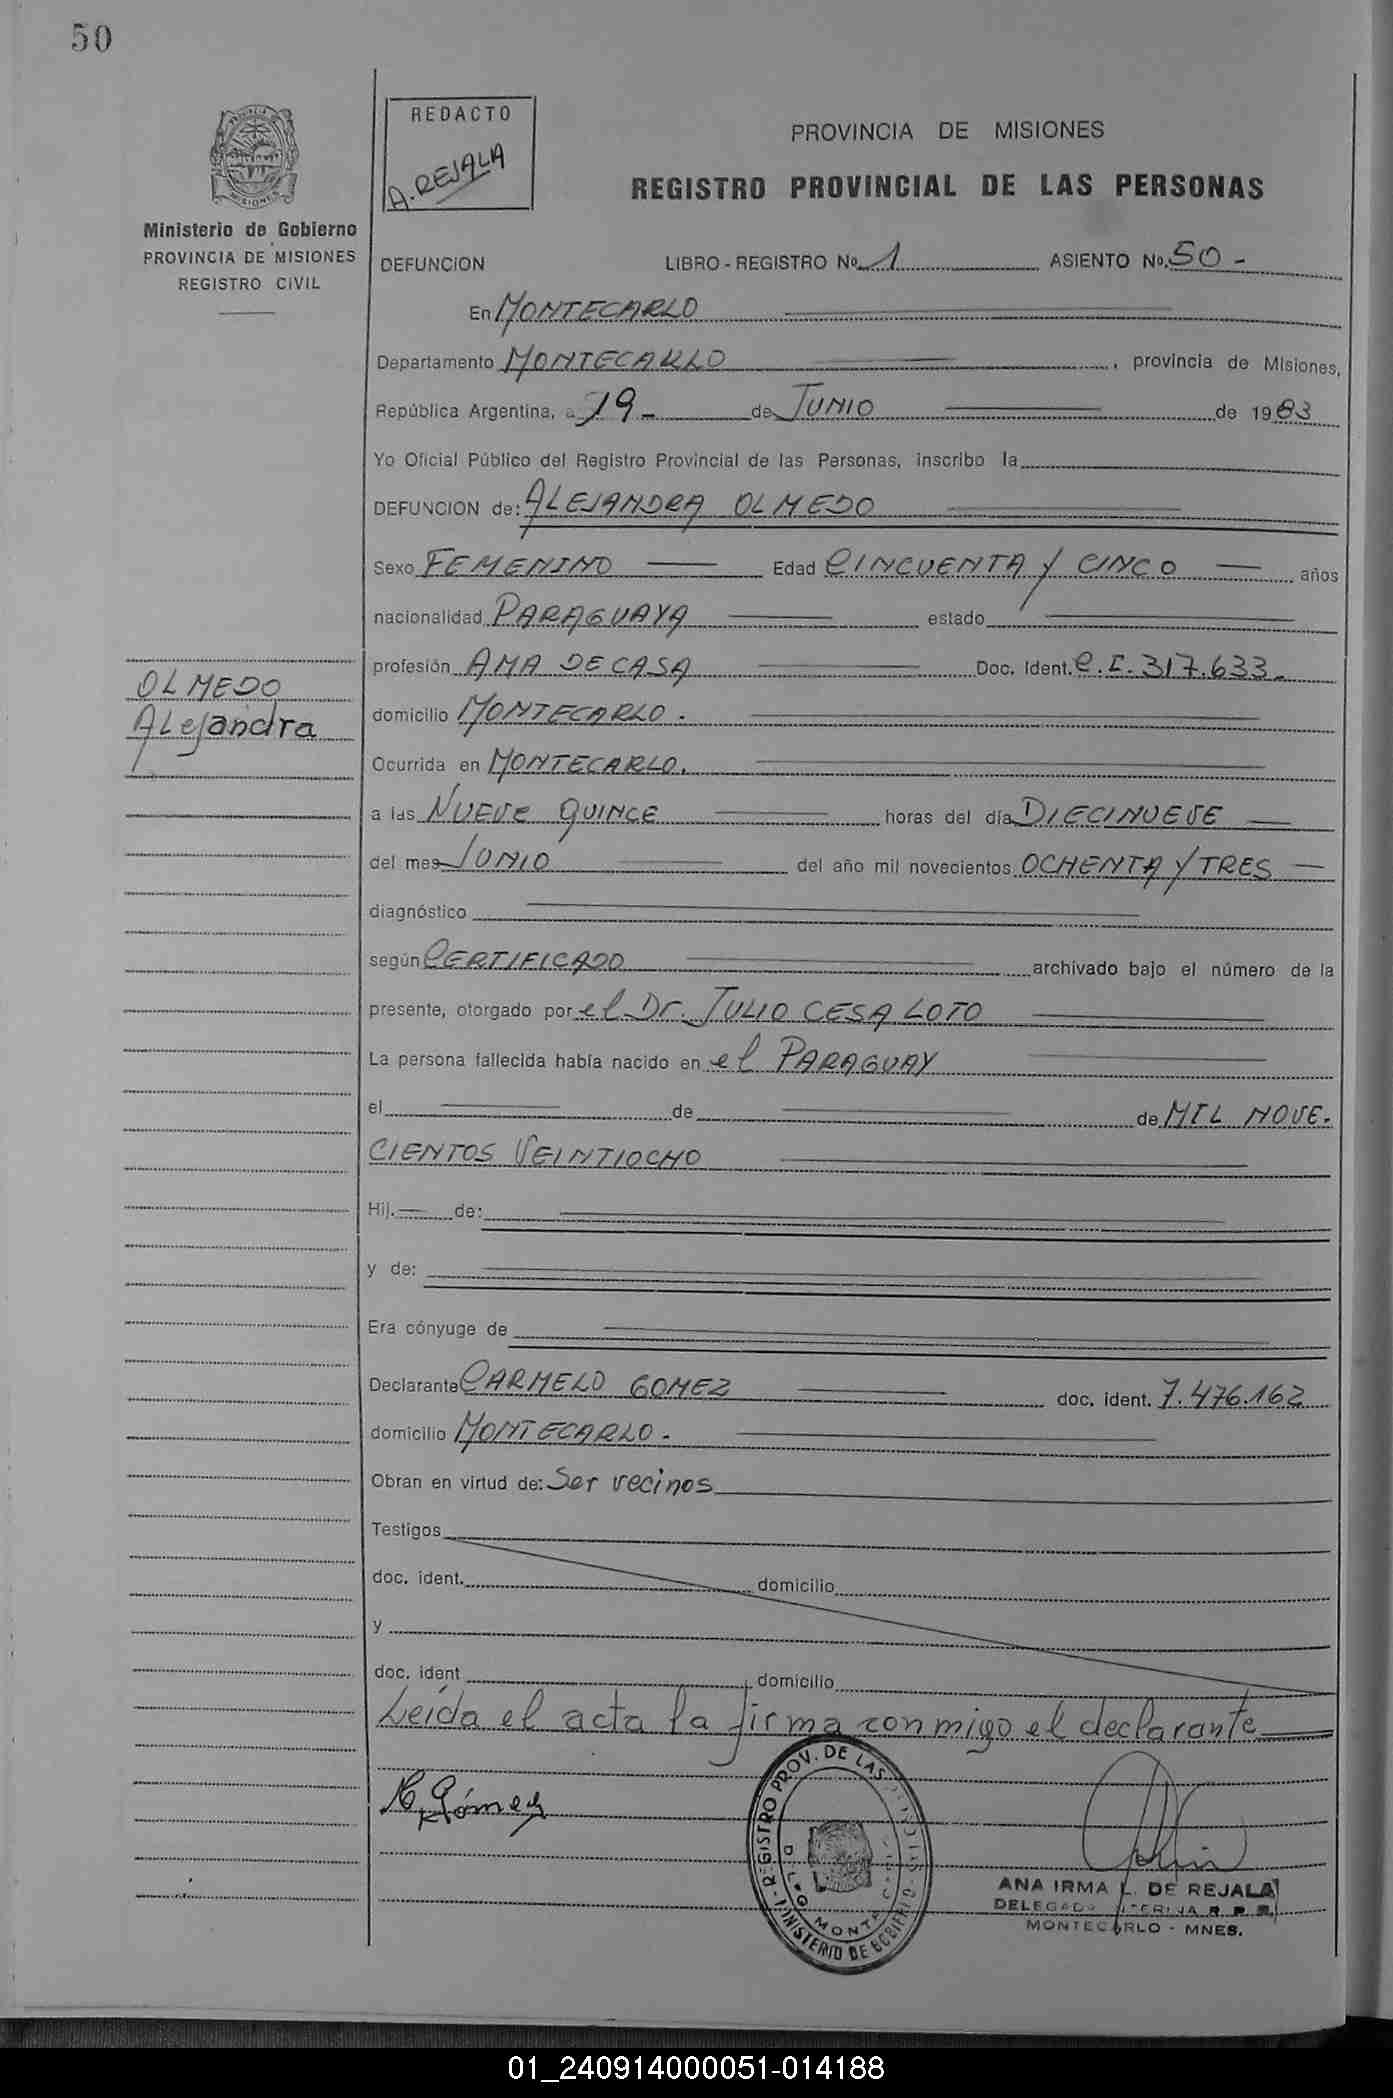 50
REDACTO
A. REJALA
PROVINCIA DE MISIONES
REGISTRO PROVINCIAL DE LAS PERSONAS
Ministerio de Gobierno
PROVINCIA DE MISIONES
REGISTRO CIVIL
DEFUNCION LIBRO - REGISTRO No. 1 ASIENTO No. 50 -
En MONTECARLO
Departamento MONTECARLO, provincia de Misiones,
República Argentina, a 19 - de JUNIO de 1983
Yo Oficial Público del Registro Provincial de las Personas, inscribo la
DEFUNCION de: ALEJANDRA OLMEDO
Sexo FEMENINO Edad CINCUENTA Y CINCO años
nacionalidad PARAGUAYA estado
profesión AMA DE CASA Doc. Ident. C.I. 317.633.
OLMEDO
Alejandra
domicilio MONTECARLO.
Ocurrida en MONTECARLO.
a las NUEVE QUINCE horas del día DIECINUEVE
del mes JUNIO del año mil novecientos OCHENTA Y TRES
diagnóstico
según CERTIFICADO archivado bajo el número de la
presente, otorgado por el Dr. JULIO CESA LOTO
La persona fallecida había nacido en el PARAGUAY
el de de MIL NOVE.
CIENTOS VEINTIOCHO
Hij. de:
y de:
Era cónyuge de
Declarante CARMELO GOMEZ doc. ident. 7.476.162
domicilio MONTECARLO.
Obran en virtud de: Ser vecinos
Testigos
doc. ident. domicilio
y
doc. ident domicilio
Leída el acta la firma conmigo el declarante
C. Gómez
REGISTRO PROV. DE LAS
MINISTERIO DE GOBIERNO
ANA IRMA L. DE REJALA
DELEGADA INTERINA R. P. P.
MONTECARLO - MNES.
01_240914000051-014188